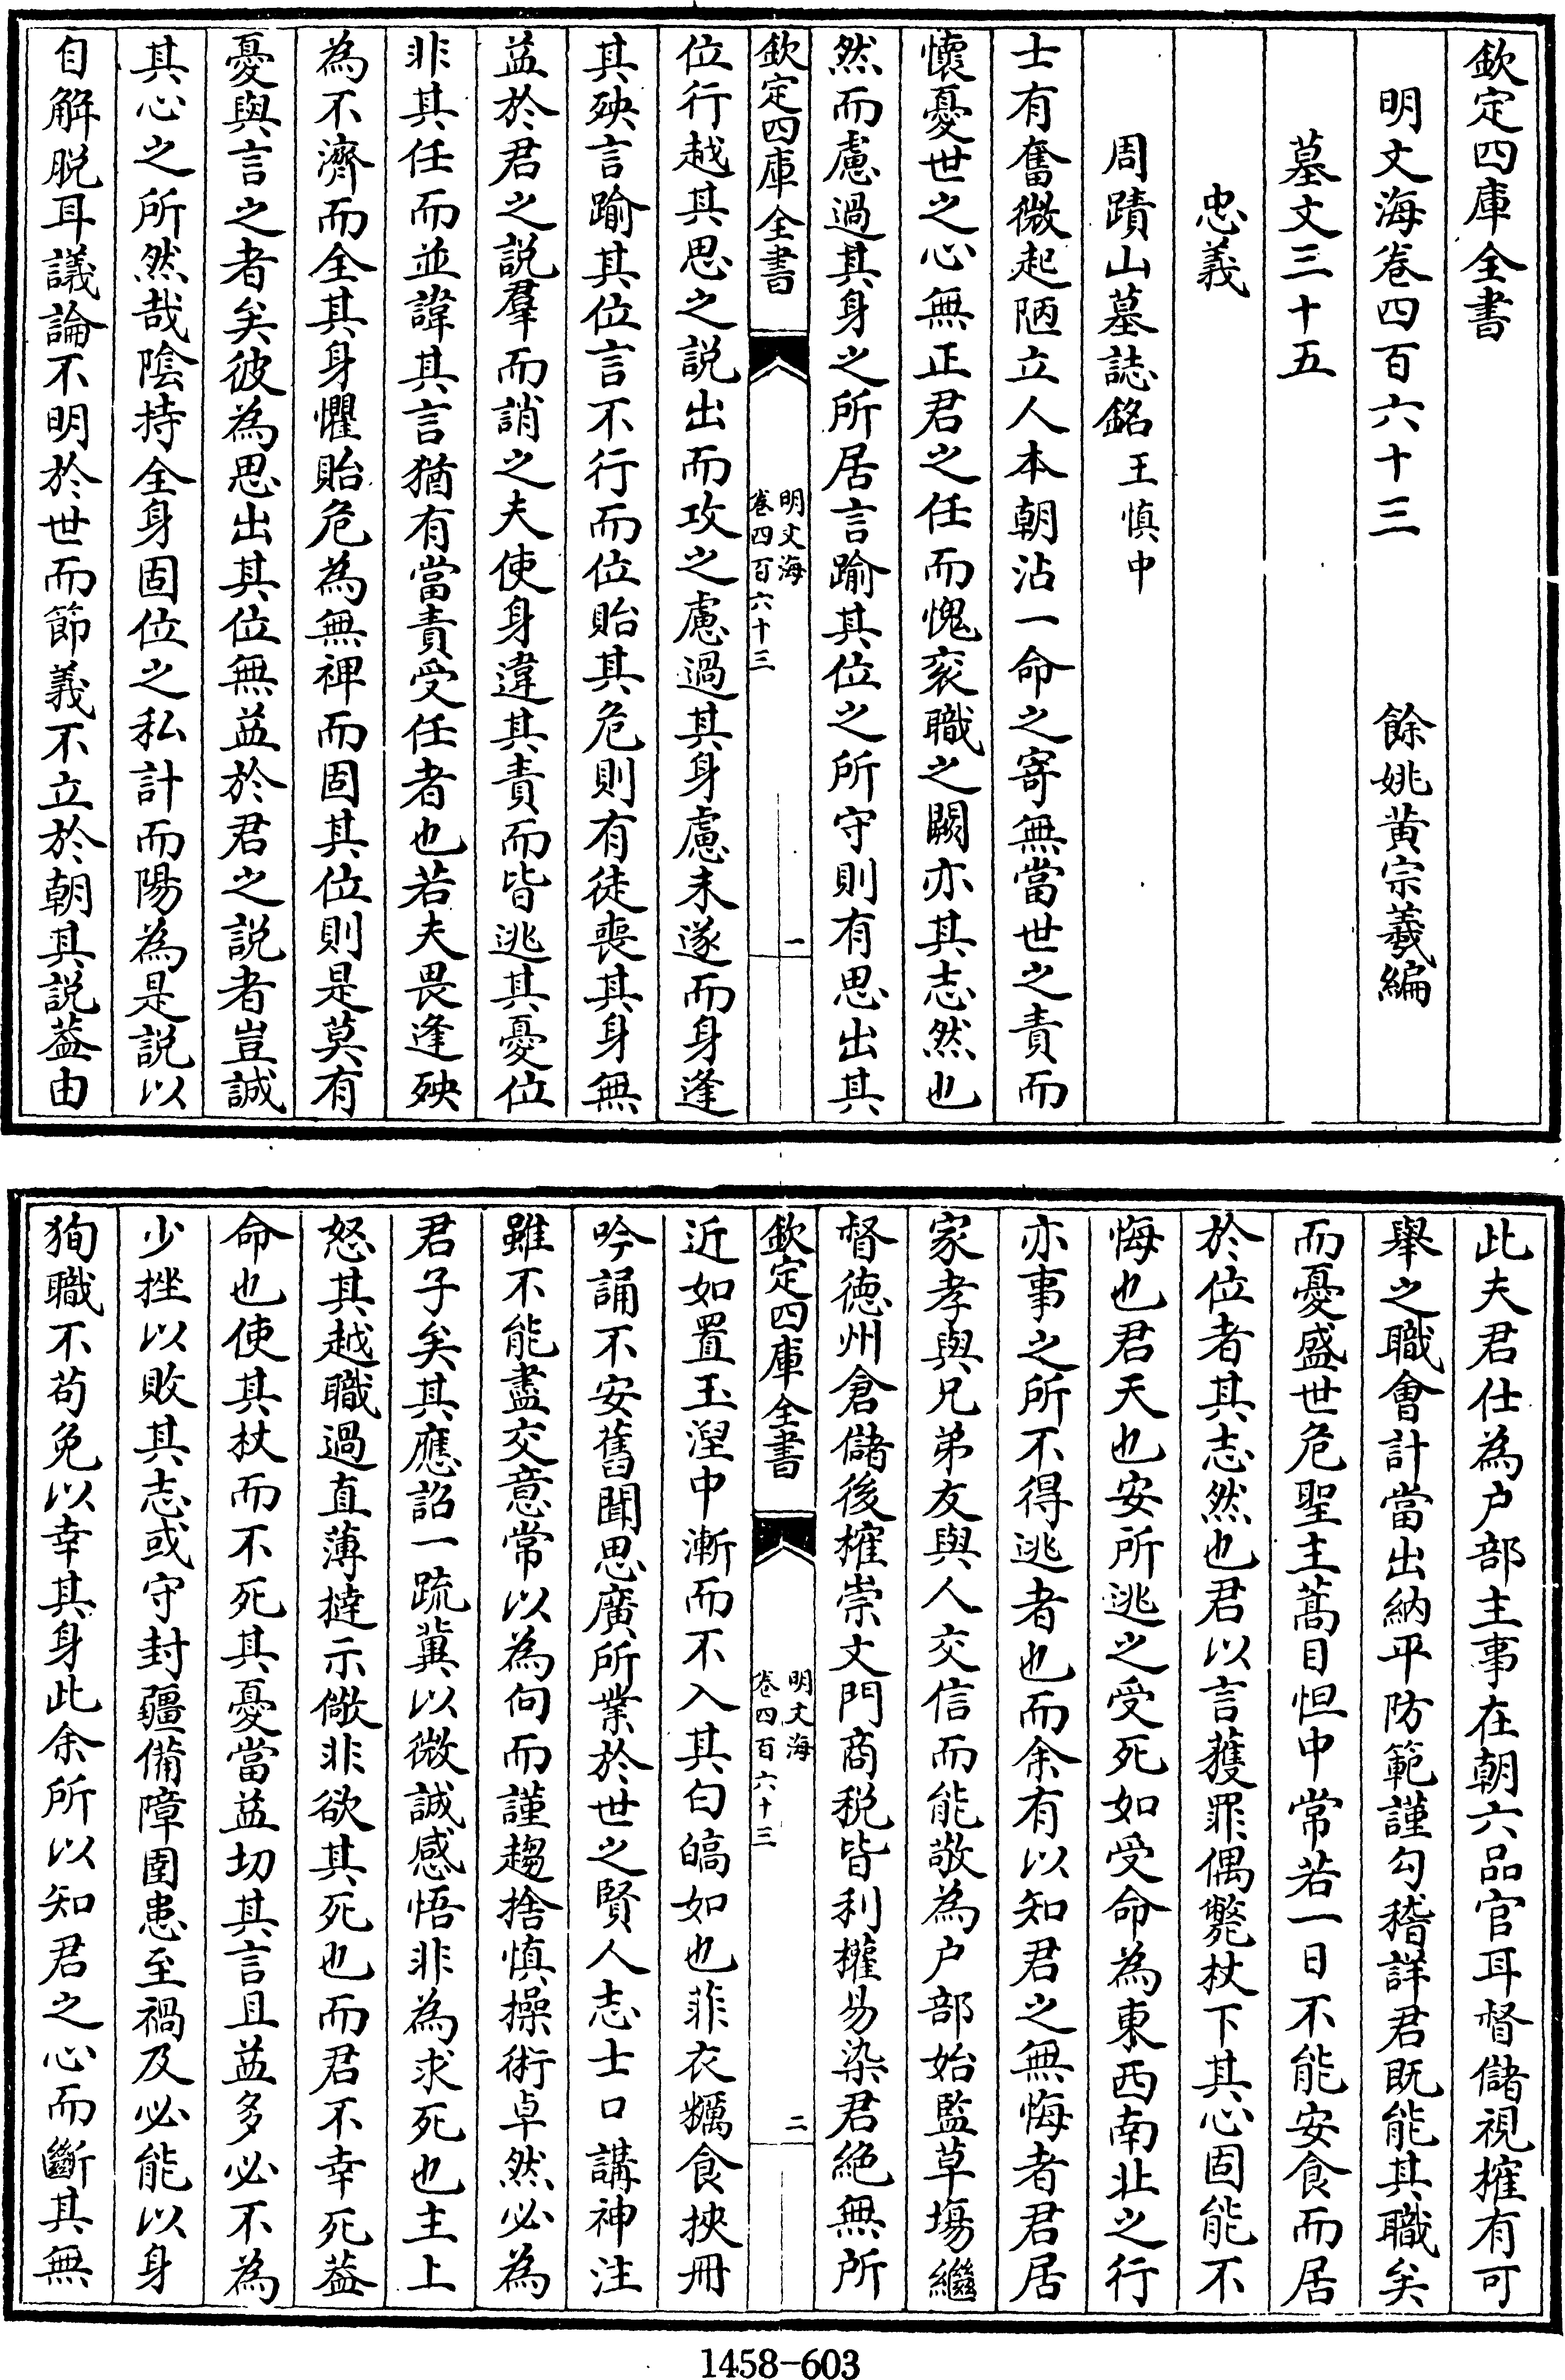 欽定四庫全書
明文海卷四百六十三　餘姚黄宗羲編
墓文三十五
忠義
周蹟山墓誌銘王慎中
士有奮微起陋立人本朝沾一命之寄無當世之責而
懷憂世之心無正君之任而愧衮職之闕亦其志然也
然而慮過其身之所居言踰其位之所守則有思出其
欽定四庫全書
明文海
卷四百六十三
一
位行越其思之説出而攻之慮過其身慮未遂而身逢
其殃言踰其位言不行而位貽其危則有徒喪其身無
益於君之説羣而誚之夫使身違其責而皆逃其憂位
非其任而並諱其言猶有當責受任者也若夫畏逢殃
為不濟而全其身懼貽危為無裨而固其位則是莫有
憂與言之者矣彼為思出其位無益於君之説者豈誠
其心之所然哉陰持全身固位之私計而陽為是説以
自解脱耳議論不明於世而節義不立於朝其説葢由
此夫君仕為户部主事在朝六品官耳督儲視榷有可
舉之職會計當出納平防範謹勾稽詳君既能其職矣
而憂盛世危聖主蒿目怛中常若一日不能安食而居
於位者其志然也君以言獲罪偶斃杖下其心固能不
悔也君天也安所逃之受死如受命為東西南北之行
亦事之所不得逃者也而余有以知君之無悔者君居
家孝與兄弟友與人交信而能敬為户部始監草塲繼
督德州倉儲後榷崇文門商税皆利權易染君絶無所
欽定四庫全書
明文海
卷四百六十三
二
近如置玉湼中漸而不入其白皜如也菲衣糲食挾冊
吟誦不安舊聞思廣所業於世之賢人志士口講神注
雖不能盡交意常以為向而謹趨捨慎操術卓然必為
君子矣其應詔一疏冀以微誠感悟非為求死也主上
怒其越職過直薄撻示儆非欲其死也而君不幸死葢
命也使其杖而不死其憂當益切其言且益多必不為
少挫以敗其志或守封疆備障圉患至禍及必能以身
狥職不苟免以幸其身此余所以知君之心而斷其無
1458-603